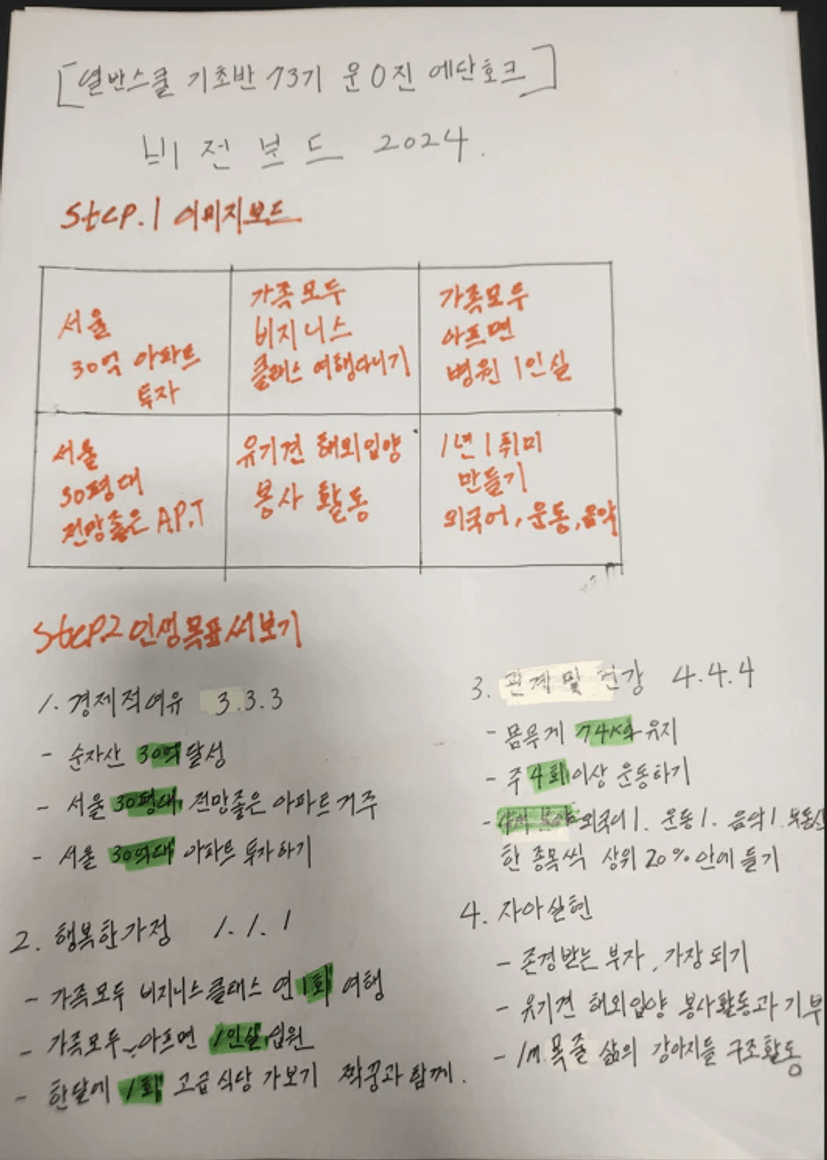 [열반스쿨 기초반 73기 운0진 에단호크]
비전보드 2024.
Step.1 이미지보드
서울
30억 아파트
투자
가족모두
비지니스
클래스 여행다니기
가족모두
아프면
병원 1인실
서울
30평대
전망좋은 A.P.T
유기견 해외입양
봉사 활동
1년 1취미
만들기
외국어, 운동, 음악
Step.2 인생목표써보기
1. 경제적여유 3.3.3
- 순자산 30억달성
- 서울 30평대 전망좋은 아파트거주
- 서울 30억대 아파트 투자하기
2. 행복한가정 1.1.1
- 가족모두 비지니스클래스 연1회 여행
- 가족모두 아프면 1인실 입원
- 한달에 1회 고급식당 가보기 짝꿍과 함께.
3. 관계 및 건강 4.4.4
- 몸무게 74kg 유지
- 주4회이상 운동하기
- 외국어1. 운동1. 음악1. 부동산
한 종목씩 상위 20%안에 들기
4. 자아실현
- 존경받는 부자, 가장 되기
- 유기견 해외입양 봉사활동과 기부
- 1m 목줄 삶의 강아지들 구조활동